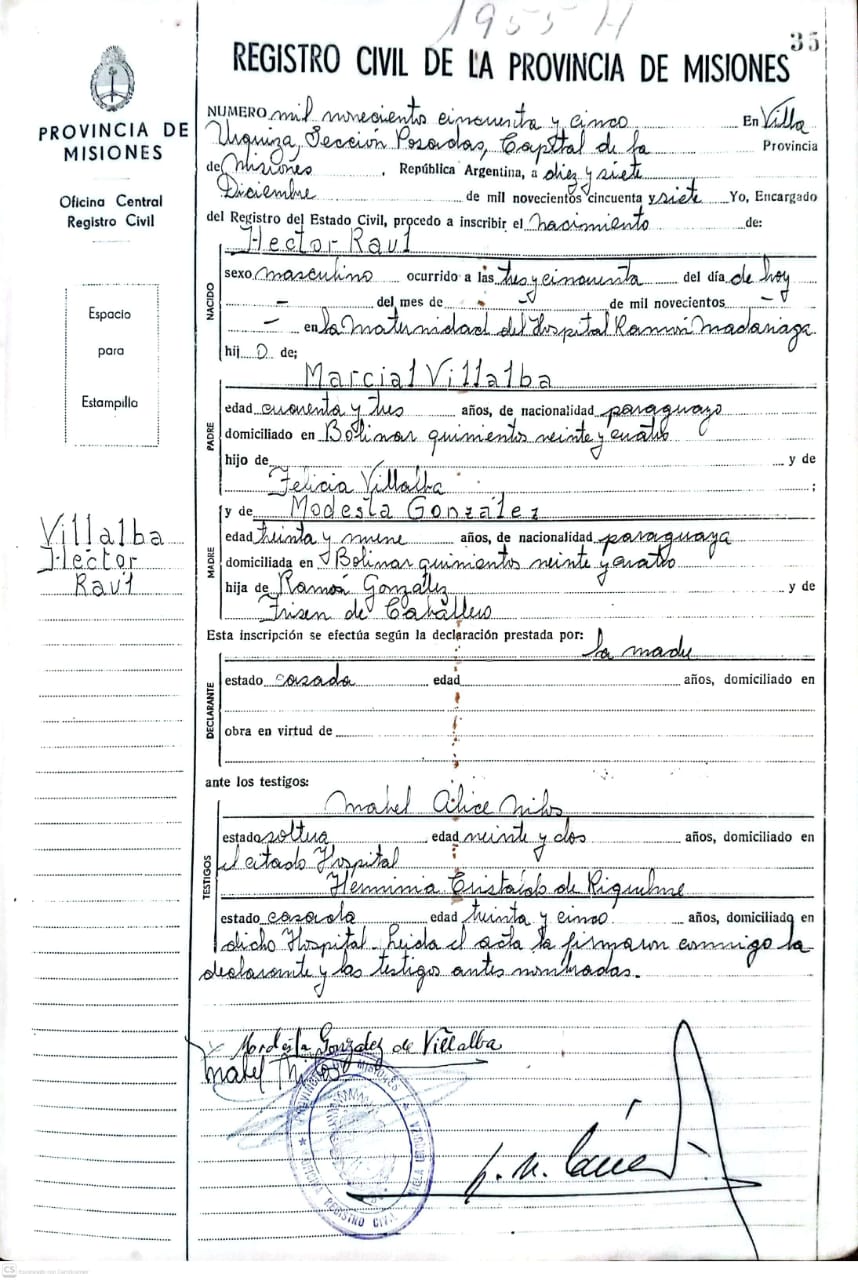 1955 H
35
REGISTRO CIVIL DE LA PROVINCIA DE MISIONES
PROVINCIA DE
MISIONES
Oficina Central
Registro Civil
Espacio
para
Estampilla
Villalba
Hector
Raúl
NUMERO mil novecientos cincuenta y cinco En Villa
Urquiza, Sección Posadas, Capital de la Provincia
de Misiones, República Argentina, a diez y siete
Diciembre de mil novecientos cincuenta y siete Yo, Encargado
del Registro del Estado Civil, procedo a inscribir el nacimiento de:
NACIDO
Hector Raúl
sexo masculino ocurrido a las tres y cincuenta del día de hoy
— del mes de — de mil novecientos —
— en la Maternidad del Hospital Ramón Madariaga
hij o de;
PADRE
Marcial Villalba
edad cuarenta y tres años, de nacionalidad paraguayo
domiciliado en Bolivar quinientos veinte y cuatro
hijo de y de
Felicia Villalba ;
MADRE
y de Modesta González
edad treinta y nueve años, de nacionalidad paraguaya
domiciliada en Bolivar quinientos veinte y cuatro
hija de Ramón González y de
de Caballero
Esta inscripción se efectúa según la declaración prestada por:
la madre
DECLARANTE
estado casada edad años, domiciliado en
obra en virtud de
ante los testigos:
TESTIGOS
Mabel Alice
estado soltera edad veinte y dos años, domiciliado en
el citado Hospital
Herminia Cristaldo de Riquelme
estado casada edad treinta y cinco años, domiciliado en
dicho Hospital. Leida el acta la firmaron conmigo la
declarante y las testigos antes nombradas.
Modesta Gonzalez de Villalba
Mabel
PROVINCIA DE MISIONES
OFICINA REGISTRO CIVIL
VILLA URQUIZA
CS